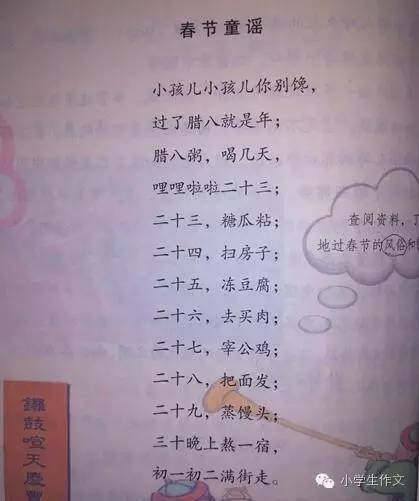 春节童谣
小孩儿小孩儿你别馋，
过了腊八就是年；
腊八粥，喝几天，
哩哩啦啦二十三；
二十三，糖瓜粘；
二十四，扫房子；
二十五，冻豆腐；
二十六，去买肉；
二十七，宰公鸡；
二十八，把面发；
二十九，蒸馒头；
三十晚上熬一宿，
初一初二满街走。
查阅资料，了
地过春节的风俗和
鑼鼓喧天慶豐
小学生作文